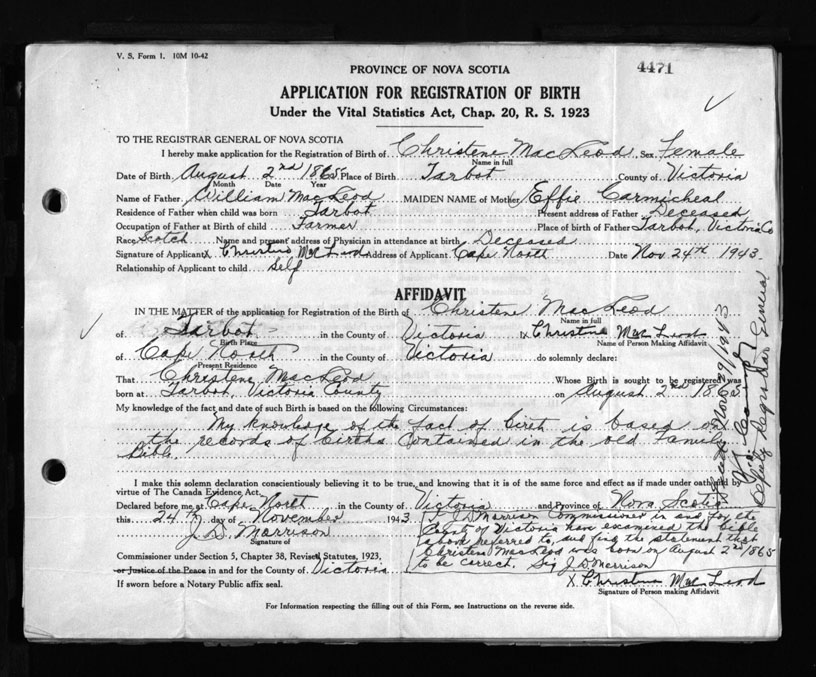 V. S. Form 1. 10M 10-42
4471
PROVINCE OF NOVA SCOTIA
APPLICATION FOR REGISTRATION OF BIRTH
Under the Vital Statistics Act, Chap. 20, R. S. 1923
TO THE REGISTRAR GENERAL OF NOVA SCOTIA
I hereby make application for the Registration of Birth of Christene MacLeod Sex Female
Name in full
Date of Birth August 2nd 1865 Place of Birth Tarbot County of Victoria
Month Date Year
Name of Father William MacLeod MAIDEN NAME of Mother Effie Carmicheal
Residence of Father when child was born Tarbot Present address of Father Deceased
Occupation of Father at Birth of child Farmer Place of birth of Father Tarbot, Victoria Co
Race Scotch Name and present address of Physician in attendance at birth Deceased
Signature of Applicant x Christine MacLeod Address of Applicant Cape North Date Nov 24th 1943.
Relationship of Applicant to child self
AFFIDAVIT
IN THE MATTER of the application for Registration of the Birth of Christene MacLeod
Name in full
of Tarbot in the County of Victoria x Christine MacLeod
Birth Place Name of Person Making Affidavit
of Cape North in the County of Victoria do solemnly declare:
Present Residence
That Christene MacLeod Whose Birth is sought to be registered was
born at Tarbot, Victoria County on August 2nd 1865
My knowledge of the fact and date of such Birth is based on the following Circumstances:
My knowledge of the fact of birth is based on
the records of births contained in the old Family
Bible.
I make this solemn declaration conscientiously believing it to be true, and knowing that it is of the same force and effect as if made under oath and by
virtue of The Canada Evidence Act.
Declared before me at Cape North in the County of Victoria and Province of Nova Scotia
this 24th day of November 1943
J. D. Morrison
Signature of
I J. D. Morrison Commissioner in and for the
County of Victoria have examined the Bible
above referred to, and find the statement that
Christene MacLeod was born on August 2nd 1865
to be correct. Sig J D Morrison
Commissioner under Section 5, Chapter 38, Revised Statutes, 1923,
or Justice of the Peace in and for the County of Victoria
If sworn before a Notary Public affix seal.
x Christine MacLeod
Signature of Person making Affidavit
For Information respecting the filling out of this Form, see Instructions on the reverse side.
Nov 29/1943
Deputy Registrar General